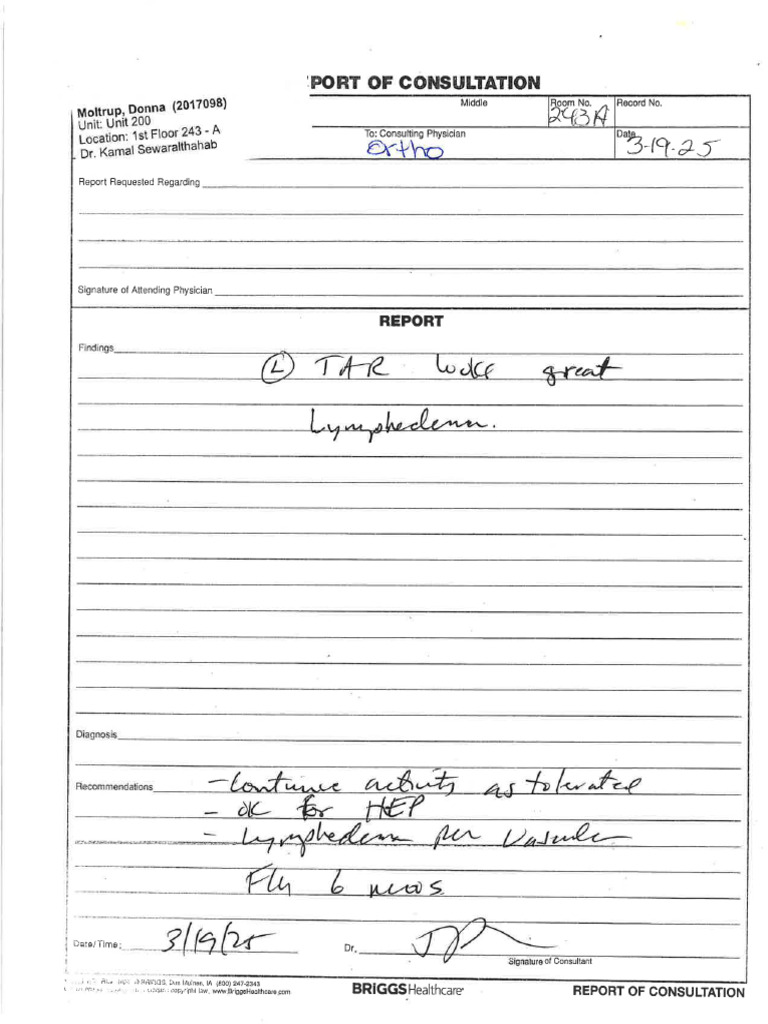 PORT OF CONSULTATION
Moltrup, Donna (2017098)
Unit: Unit 200
Location: 1st Floor 243 - A
Dr. Kamal Sewaralthahab
Middle
Room No.
243A
Record No.
To: Consulting Physician
Ortho
Date
3-19-25
Report Requested Regarding
Signature of Attending Physician
REPORT
Findings
Ⓛ TAR looks great
Lymphedema.
Diagnosis
Recommendations
- Continue activity as tolerated
- OK for HEP
- Lymphedema per Vascular
F/u 6 mos
Date/Time: 3/19/25 Dr.
Signature of Consultant
Des Moines, IA (800) 247-2343
copyright law. www.BriggsHealthcare.com
BRIGGSHealthcare®
REPORT OF CONSULTATION